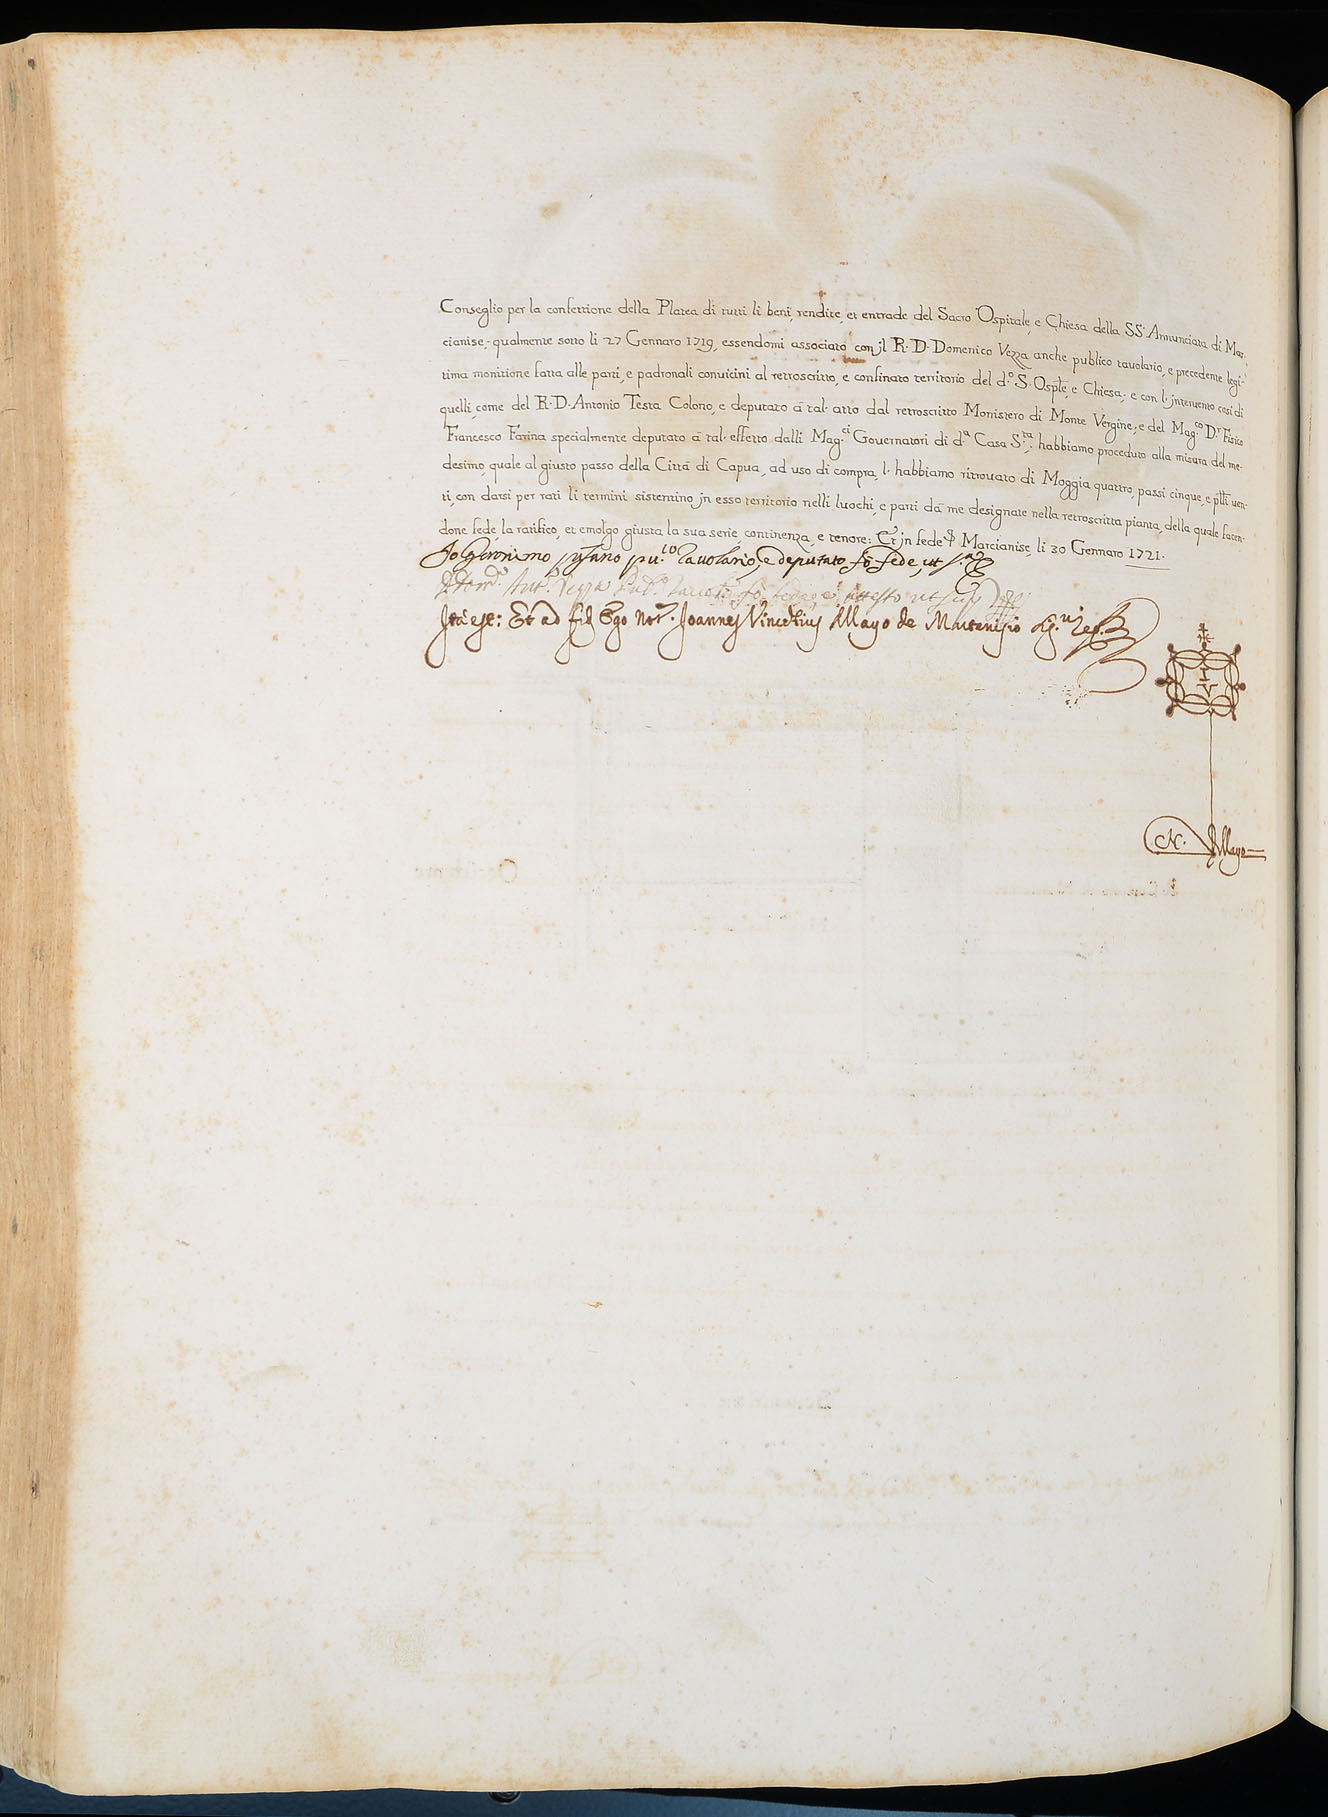 Conseglio per la confettione della Platea di tutti li beni, rendite, et entrade del Sacro Ospitale, e Chiesa della SS. Annunciata di Mar-
cianise, qualmente sotto li 27 Gennaro 1719, essendomi associato con jl R. D. Domenico Vezza anche publico tavolario, e precedente legi-
tima monitione fatta alle parti, e padronali convicini al retroscritto, e confinato territorio del d.º S. Osple, e Chiesa, e con l' jntervento cosi di
quelli, come del R. D. Antonio Testa Colono, e deputato a tal atto dal retroscritto Monistero di Monte Vergine, e del Mag.co D.r Fisico
Francesco Farina specialmente deputato a tal effetto dalli Mag.ci Governatori di d.a Casa S.ta, habbiamo proceduto alla misura del me-
desimo, quale al giusto passo della Città di Capua, ad uso di compra, l' habbiamo ritrovato di Moggia quattro, passi cinque, e ptli ven-
ti, con darsi per rati li termini sistentino jn esso territorio nelli luochi, e parti da me designate nella retroscritta pianta, della quale facen-
done fede, la ratifico, et emolgo giusta la sua serie, continenza, e tenore: Et jn fede Marcianise, li 30 Gennaro 1721.
Io Geronimo pu.co Tavolario, e deputato fò fede, ut s.a
Vezza fò fede, et attesto ut sup.
Ita est: Et ad fid Ego Not. Joannes Vincentius Mayo de Martenisio
I V
N. Mayo